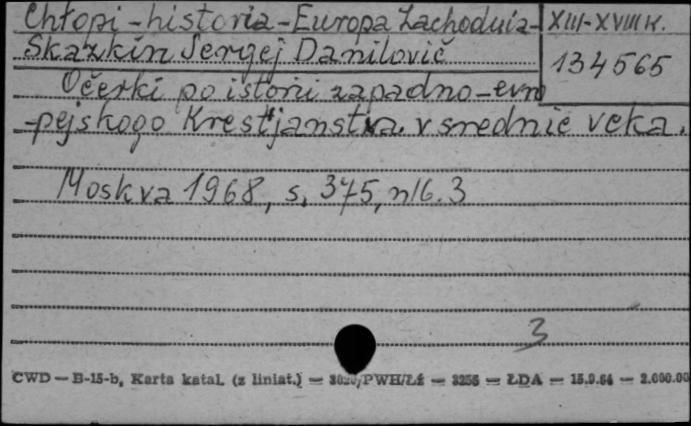 Chłopi - historia - Europa Zachodnia - XIII-XVIII w.
Skazkin Sergej Danilovič 134565
Očerki po istorii zapadno-evro
-pejskogo Krest'janstva v srednie veka.
Moskva 1968, s. 375, nlb. 3
3
CWD — B-15-b, Karta katal. (z liniat.) — /PWH/Łź — 3256 — ŁDA — 15.9.64 — 2.000.00